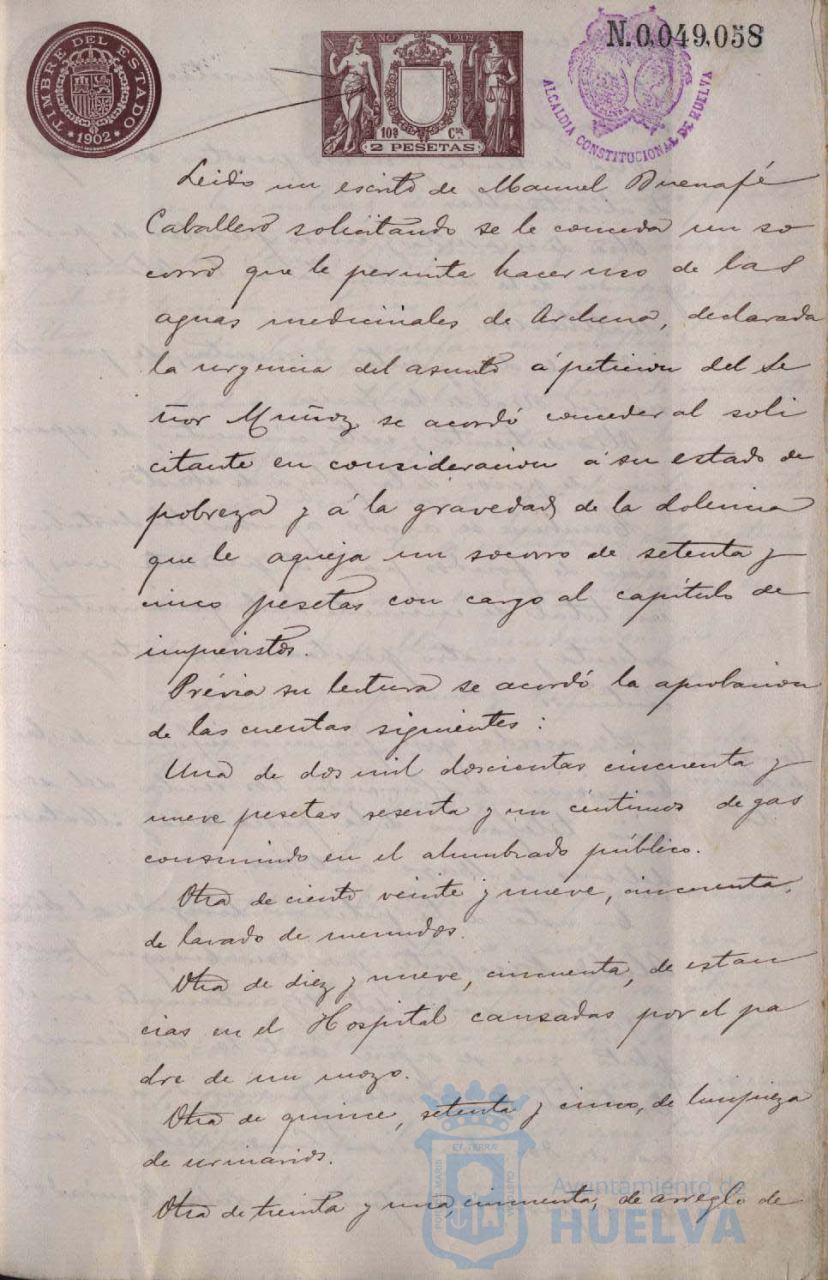 TIMBRE DEL ESTADO
1902
AÑO 1902
10ª Cª
2 PESETAS
N.0.049.058
ALCALDIA CONSTITUCIONAL DE HUELVA
Leido un escrito de Manuel Buenafé
Caballero solicitando se le conceda un so
corro que le permita hacer uso de las
aguas medicinales de Archena, declarada
la urgencia del asunto á peticion del Se
ñor Muñoz se acordó conceder al soli
citante en consideracion á su estado de
pobreza y á la gravedad de la dolencia
que le aqueja un socorro de setenta y
cinco pesetas con cargo al capítulo de
imprevistos.
Prévia su lectura se acordó la aprobacion
de las cuentas siguientes:
Una de dos mil doscientas cincuenta y
nueve pesetas sesenta y un céntimos de gas
consumido en el alumbrado público.
Otra de ciento veinte y nueve, cincuenta,
de lavado de menudos.
Otra de diez y nueve, cincuenta, de estan
cias en el Hospital causadas por el pa
dre de un mozo.
Otra de quince, setenta y cinco, de limpieza
de urinarios.
Otra de treinta y una, cincuenta, de arreglo de
Ayuntamiento de
HUELVA